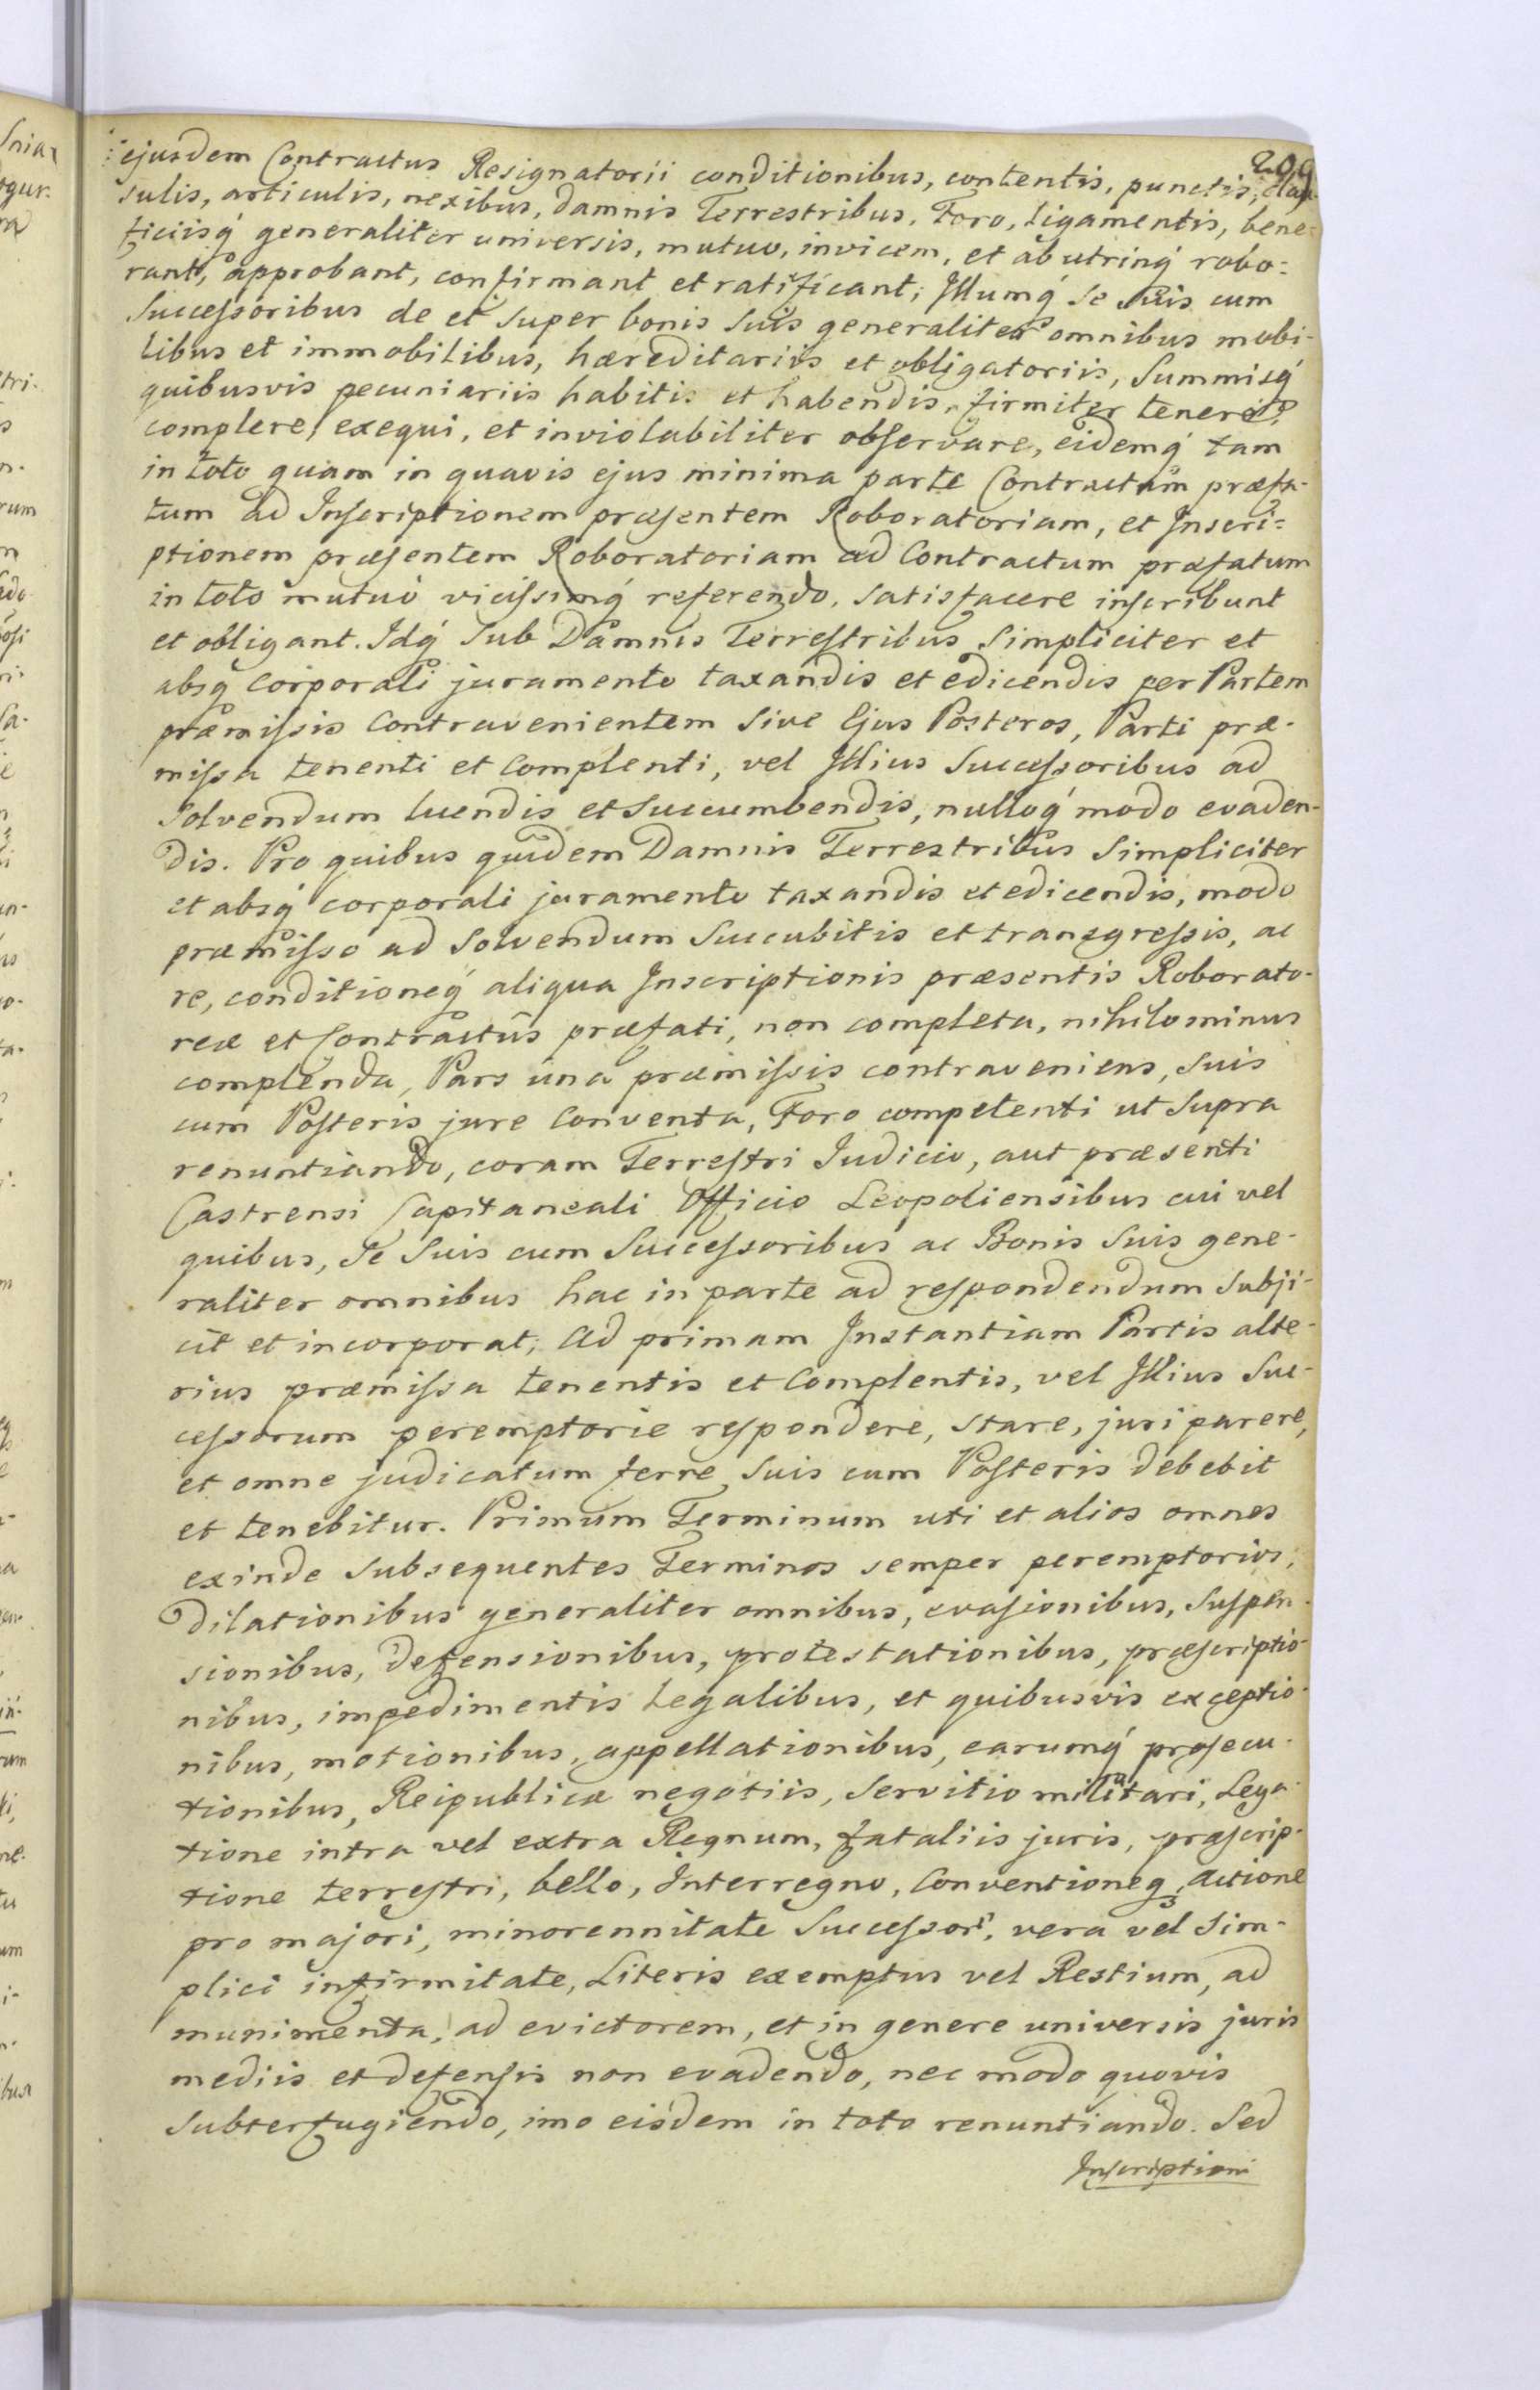 209
ejusdem Contractus Resignatorii conditionibus, contentis, punctis, clau-
sulis, articulis, nexibus, damnis Terrestribus, Foro, ligamentis, bene=
ficiisq́ generaliter universis, mutuo, invicem, et ab utrinq́ robo=
rant, approbant, confirmant et ratificant; Illumq́ se suis cum
Successoribus de et super bonis suis generaliter omnibus mobi-
libus et immobilibus, hæreditariis et obligatoriis, Summisq́
quibusvis pecuniariis habitis et habendis, firmiter tenere,
complere, exequi, et inviolabiliter observare, eidemq́ tam
in toto quam in quavis ejus minima parte Contractum præfa-
tum ad Inscriptionem præsentem Roboratoriam, et Inscri=
ptionem præsentem Roboratoriam ad Contractum præfatum
in toto mutuò vicissimq́ referendo, satisfacere inscribunt
et obligant. Idq́ sub Damnis Terrestribus Simpliciter et
absq́ corporali juramento taxandis et edicendis per Partem
præmissis Contravenientem sive Ejus Posteros, Parti præ-
missa tenenti et Complenti, vel Illius Successoribus ad
solvendum luendis et succumbendis, nulloq́ modo evaden-
dis. Pro quibus quidem Damnis Terrestribus Simpliciter
et absq́ corporali juramento taxandis et edicendis, modo
præmisso ad solvendum succubitis et transgressis, ac
re, conditioneq́ aliqua Inscriptionis præsentis Roborato-
reæ et Contractûs præfati, non completa, nihilominus
complenda, Pars una præmissis contraveniens, suis
cum Posteris jure Conventa, Foro competenti ut supra
renuntiando, coram Terrestri Judicio, aut præsenti
Castrensi Capitaneali Officio Leopoliensibus cui vel
quibus, se suis cum Successoribus ac Bonis suis gene-
raliter omnibus hac in parte ad respondendum subji-
cit et incorporat; Ad primam Instantiam Partis alte-
rius præmissa tenentis et Complentis, vel Illius Suc-
cessorum peremptorie respondere, stare, juri parere,
et omne judicatum ferre suis cum Posteris debebit
et tenebitur. Primum Terminum uti et alios omnes
exinde subsequentes Terminos semper peremptorios,
Dilationibus generaliter omnibus, evasionibus, suspen-
sionibus, defensionibus, protestationibus, præscriptio-
nibus, impedimentis legalibus, et quibusvis exceptio-
nibus, motionibus, appellationibus, earumq́ prosecu-
tionibus, Reipublicæ negotiis, Servitio militari, Lega-
tione intra vel extra Regnum, fataliis juris, præscrip-
tione terrestri, bello, Interregno, Conventioneq, actione
pro majori, minorennitate Successor', vera vel sim-
plici infirmitate, Literis exemptus vel Restium, ad
munimenta, ad evictorem, et in genere universis juris
mediis et defensis non evadendo, nec modo quovis
subterfugiendo, imo eisdem in toto renuntiando. Sed
Inscriptioni